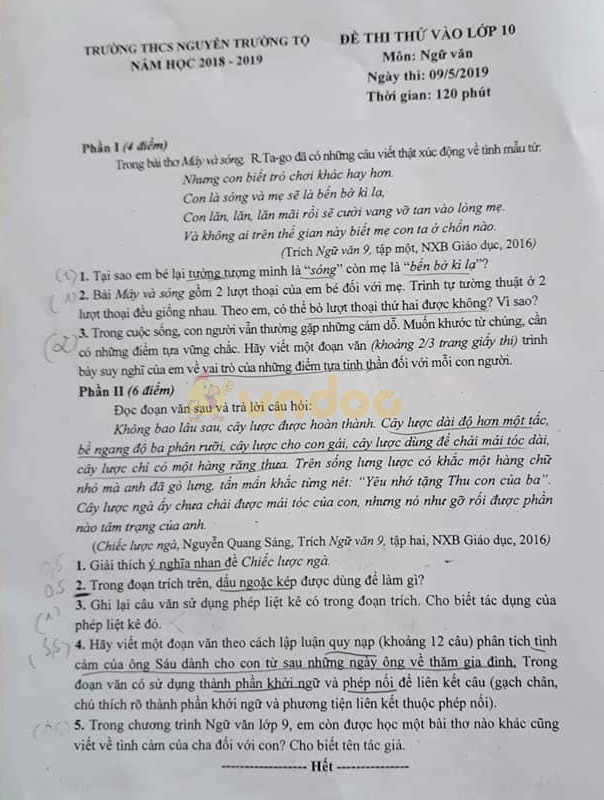 TRƯỜNG THCS NGUYỄN TRƯỜNG TỘ
NĂM HỌC 2018 - 2019
ĐỀ THI THỬ VÀO LỚP 10
Môn: Ngữ văn
Ngày thi: 09/5/2019
Thời gian: 120 phút
Phần I (4 điểm)
Trong bài thơ Mây và sóng, R.Ta-go đã có những câu viết thật xúc động về tình mẫu tử:
Nhưng con biết trò chơi khác hay hơn.
Con là sóng và mẹ sẽ là bến bờ kì lạ,
Con lăn, lăn, lăn mãi rồi sẽ cười vang vỡ tan vào lòng mẹ.
Và không ai trên thế gian này biết mẹ con ta ở chốn nào.
(Trích Ngữ văn 9, tập một, NXB Giáo dục, 2016)
(1) 1. Tại sao em bé lại tưởng tượng mình là “sóng” còn mẹ là “bến bờ kì lạ”?
(1) 2. Bài Mây và sóng gồm 2 lượt thoại của em bé đối với mẹ. Trình tự tường thuật ở 2
lượt thoại đều giống nhau. Theo em, có thể bỏ lượt thoại thứ hai được không? Vì sao?
(2) 3. Trong cuộc sống, con người vẫn thường gặp những cám dỗ. Muốn khước từ chúng, cần
có những điểm tựa vững chắc. Hãy viết một đoạn văn (khoảng 2/3 trang giấy thi) trình
bày suy nghĩ của em về vai trò của những điểm tựa tinh thần đối với mỗi con người.
Phần II (6 điểm)
vndoc
Đọc đoạn văn sau và trả lời câu hỏi:
Không bao lâu sau, cây lược được hoàn thành. Cây lược dài độ hơn một tấc,
bề ngang độ ba phân rưỡi, cây lược cho con gái, cây lược dùng để chải mái tóc dài,
cây lược chỉ có một hàng răng thưa. Trên sống lưng lược có khắc một hàng chữ
nhỏ mà anh đã gò lưng, tẩn mẩn khắc từng nét: “Yêu nhớ tặng Thu con của ba”.
Cây lược ngà ấy chưa chải được mái tóc của con, nhưng nó như gỡ rối được phần
nào tâm trạng của anh.
(Chiếc lược ngà, Nguyễn Quang Sáng, Trích Ngữ văn 9, tập hai, NXB Giáo dục, 2016)
0,5 1. Giải thích ý nghĩa nhan đề Chiếc lược ngà.
0,5 2. Trong đoạn trích trên, dấu ngoặc kép được dùng để làm gì?
(1) 3. Ghi lại câu văn sử dụng phép liệt kê có trong đoạn trích. Cho biết tác dụng của
phép liệt kê đó.
(3,5) 4. Hãy viết một đoạn văn theo cách lập luận quy nạp (khoảng 12 câu) phân tích tình
cảm của ông Sáu dành cho con từ sau những ngày ông về thăm gia đình. Trong
đoạn văn có sử dụng thành phần khởi ngữ và phép nối để liên kết câu (gạch chân,
chú thích rõ thành phần khởi ngữ và phương tiện liên kết thuộc phép nối).
5. Trong chương trình Ngữ văn lớp 9, em còn được học một bài thơ nào khác cũng
viết về tình cảm của cha đối với con? Cho biết tên tác giả.
Hết